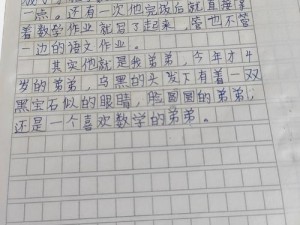 一点。还有一次他完饭后就直接拿
着数学作业就写了起来，管也不管
一边的语文作业。
其实他就是我弟弟，今年才4
岁的弟弟，乌黑的头发下有着一双
黑宝石似的眼睛，脸圆圆的弟弟；
还是一个喜欢数学的弟弟。